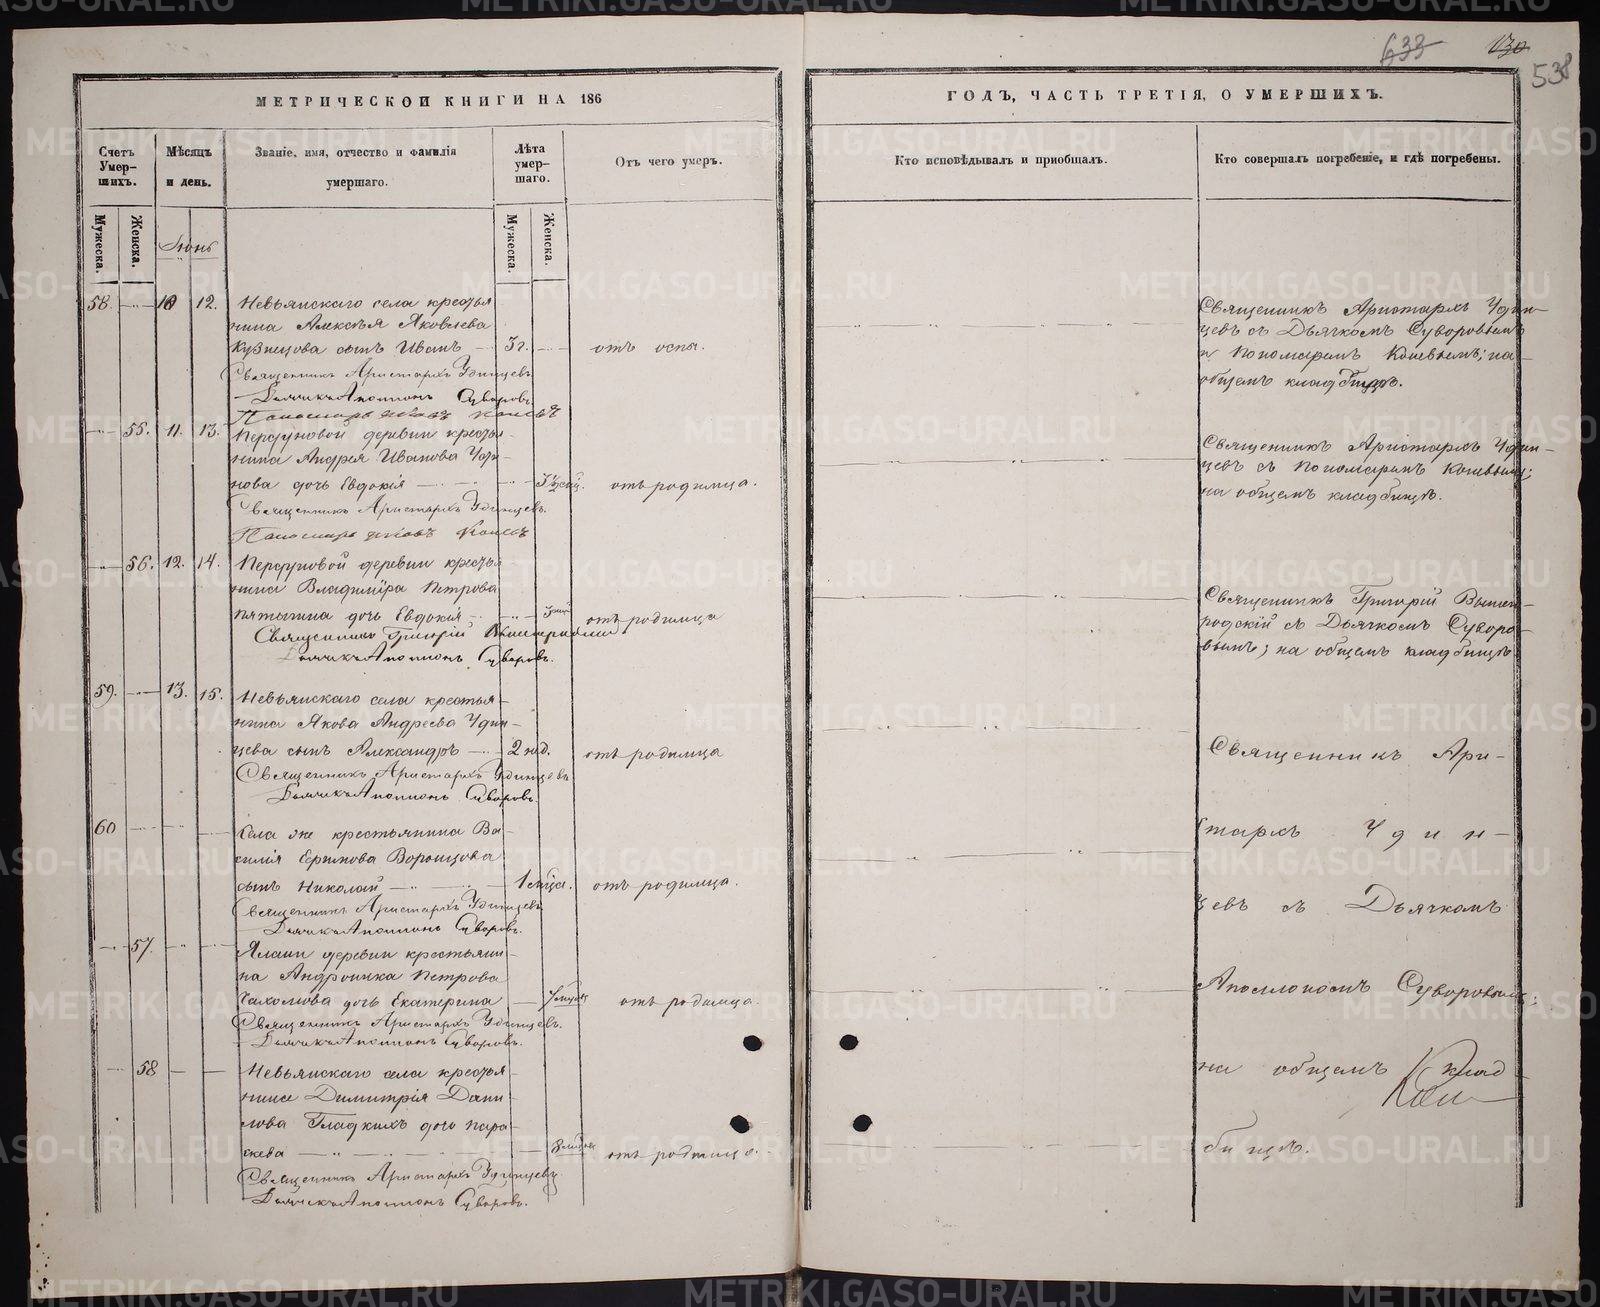 633
130
538
МЕТРИЧЕСКОЙ КНИГИ НА 186
ГОДЪ, ЧАСТЬ ТРЕТІЯ, О УМЕРШИХЪ.
Счетъ Умер-шихъ.
Мѣсяцъ и день.
Званіе, имя, отчество и фамилія
умершаго.
Лѣта умер-шаго.
Отъ чего умеръ.
Кто исповѣдывалъ и пріобщалъ.
Кто совершалъ погребеніе, и гдѣ погребены.
Мужеска.
Женска.
Мужеска.
Женска.
Іюнь
58. 10 12. Невьянскаго села крестья
нина Алексѣя Яковлева
Кузнецова сынъ Иванъ 3 г. отъ оспы.
Священникъ Аристархъ Удинцевъ
Дьячекъ Аполлонъ Суворовъ
Пономарь
Священникъ Аристархъ Удин-
цевъ съ Дьячкомъ Суворовымъ
и Пономаремъ на
общемъ кладбищѣ.
55. 11. 13. деревни крестья-
нина Андрея Иванова
нова дочь Евдокія отъ родимца.
Священникъ Аристархъ Удинцевъ
Пономарь
Священникъ Аристархъ Удин-
цевъ съ Пономаремъ
на общемъ кладбищѣ.
56. 12. 14. деревни крестья
нина Владиміра Петрова
дочь Евдокія отъ родимца
Священникъ Григорій
Дьячекъ Аполлонъ Суворовъ.
Священникъ Григорій
съ Дьячкомъ Суворо-
вымъ; на общемъ кладбищѣ
59. 13. 15. Невьянскаго села крестья-
нина Якова Андреева Удин-
цева сынъ Александръ 2 нед. отъ родимца
Священникъ Аристархъ Удинцевъ
Дьячекъ Аполлонъ Суворовъ.
60 Села же крестьянина Ва-
силія Воронцова
сынъ Николай 1 отъ родимца.
Священникъ Аристархъ Удинцевъ
Дьячекъ Аполлонъ Суворовъ.
57. деревни крестьяни-
на Андроника Петрова
дочь Екатерина отъ родимца.
Священникъ Аристархъ Удинцевъ.
Дьячекъ Аполлонъ Суворовъ.
58 Невьянскаго села крестья-
нина Димитрія Дани-
лова Гладкихъ дочь Пара-
скева отъ родимца.
Священникъ Аристархъ Удинцевъ
Дьячекъ Аполлонъ Суворовъ.
Священникъ Ари-
стархъ Удин-
цевъ съ Дьячкомъ
Аполлономъ Суворовымъ;
на общемъ клад
бищѣ.
METRIKI.GASO-URAL.RU